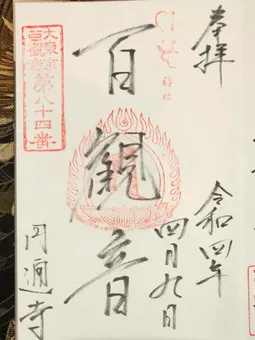 奉拝
令和四年
四月九日
百観音
大東京
百観音
第八十四番
円通寺